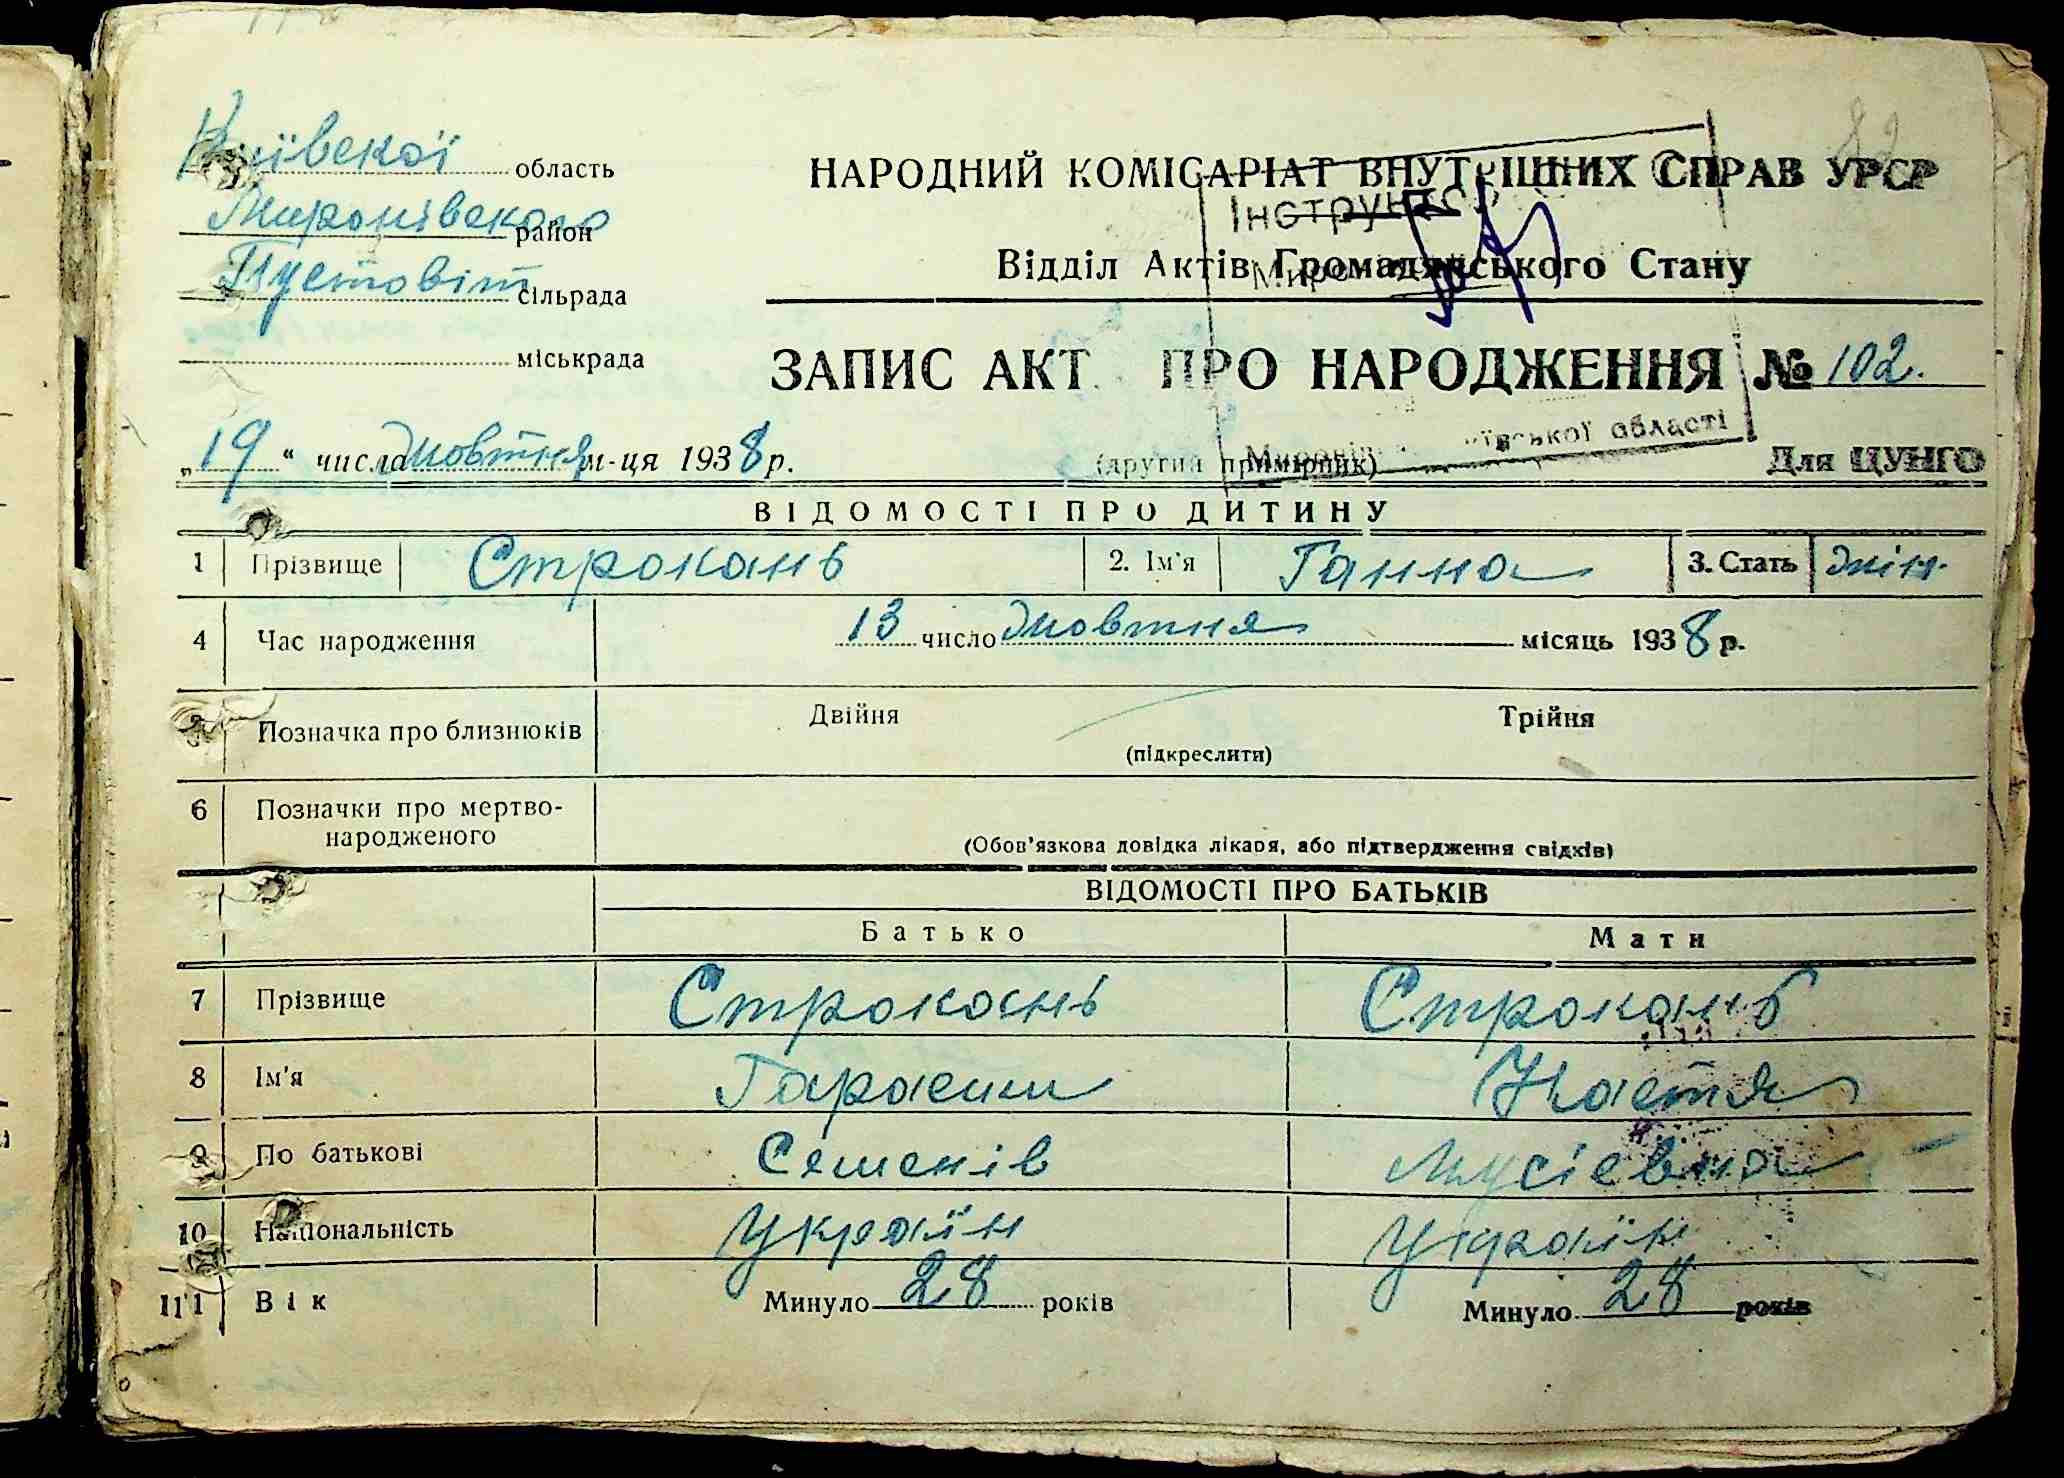 82
Київської область
НАРОДНИЙ КОМІСАРІАТ ВНУТРІШНИХ СПРАВ УРСР
Миронівського район
Інструктор
Відділ Актів Громадянського Стану
Пустовіт сільрада
міськрада
ЗАПИС АКТ ПРО НАРОДЖЕННЯ № 102.
„19“ числа жовтня м-ця 1938 р.
(другий примірник)
ївської області
Для ЦУНГО
ВІДОМОСТІ ПРО ДИТИНУ
1 Прізвище Строкань 2. Ім'я Ганна 3. Стать жін.
4 Час народження 13 число жовтня місяць 1938 р.
Позначка про близнюків Двійня Трійня
(підкреслити)
6 Позначки про мертво-
народженого
(Обов'язкова довідка лікаря, або підтвердження свідків)
ВІДОМОСТІ ПРО БАТЬКІВ
Батько Мати
7 Прізвище Строкань Строкань
8 Ім'я Гарасим Настя
9 По батькові Семенів Мусіевна
10 Національність Україн Україн
11 Вік Минуло 28 років Минуло 28 років